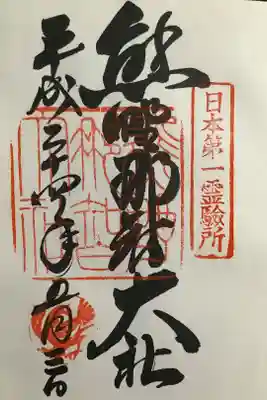 日本第一霊験所
熊野那智大社
平成二十四年五月三日